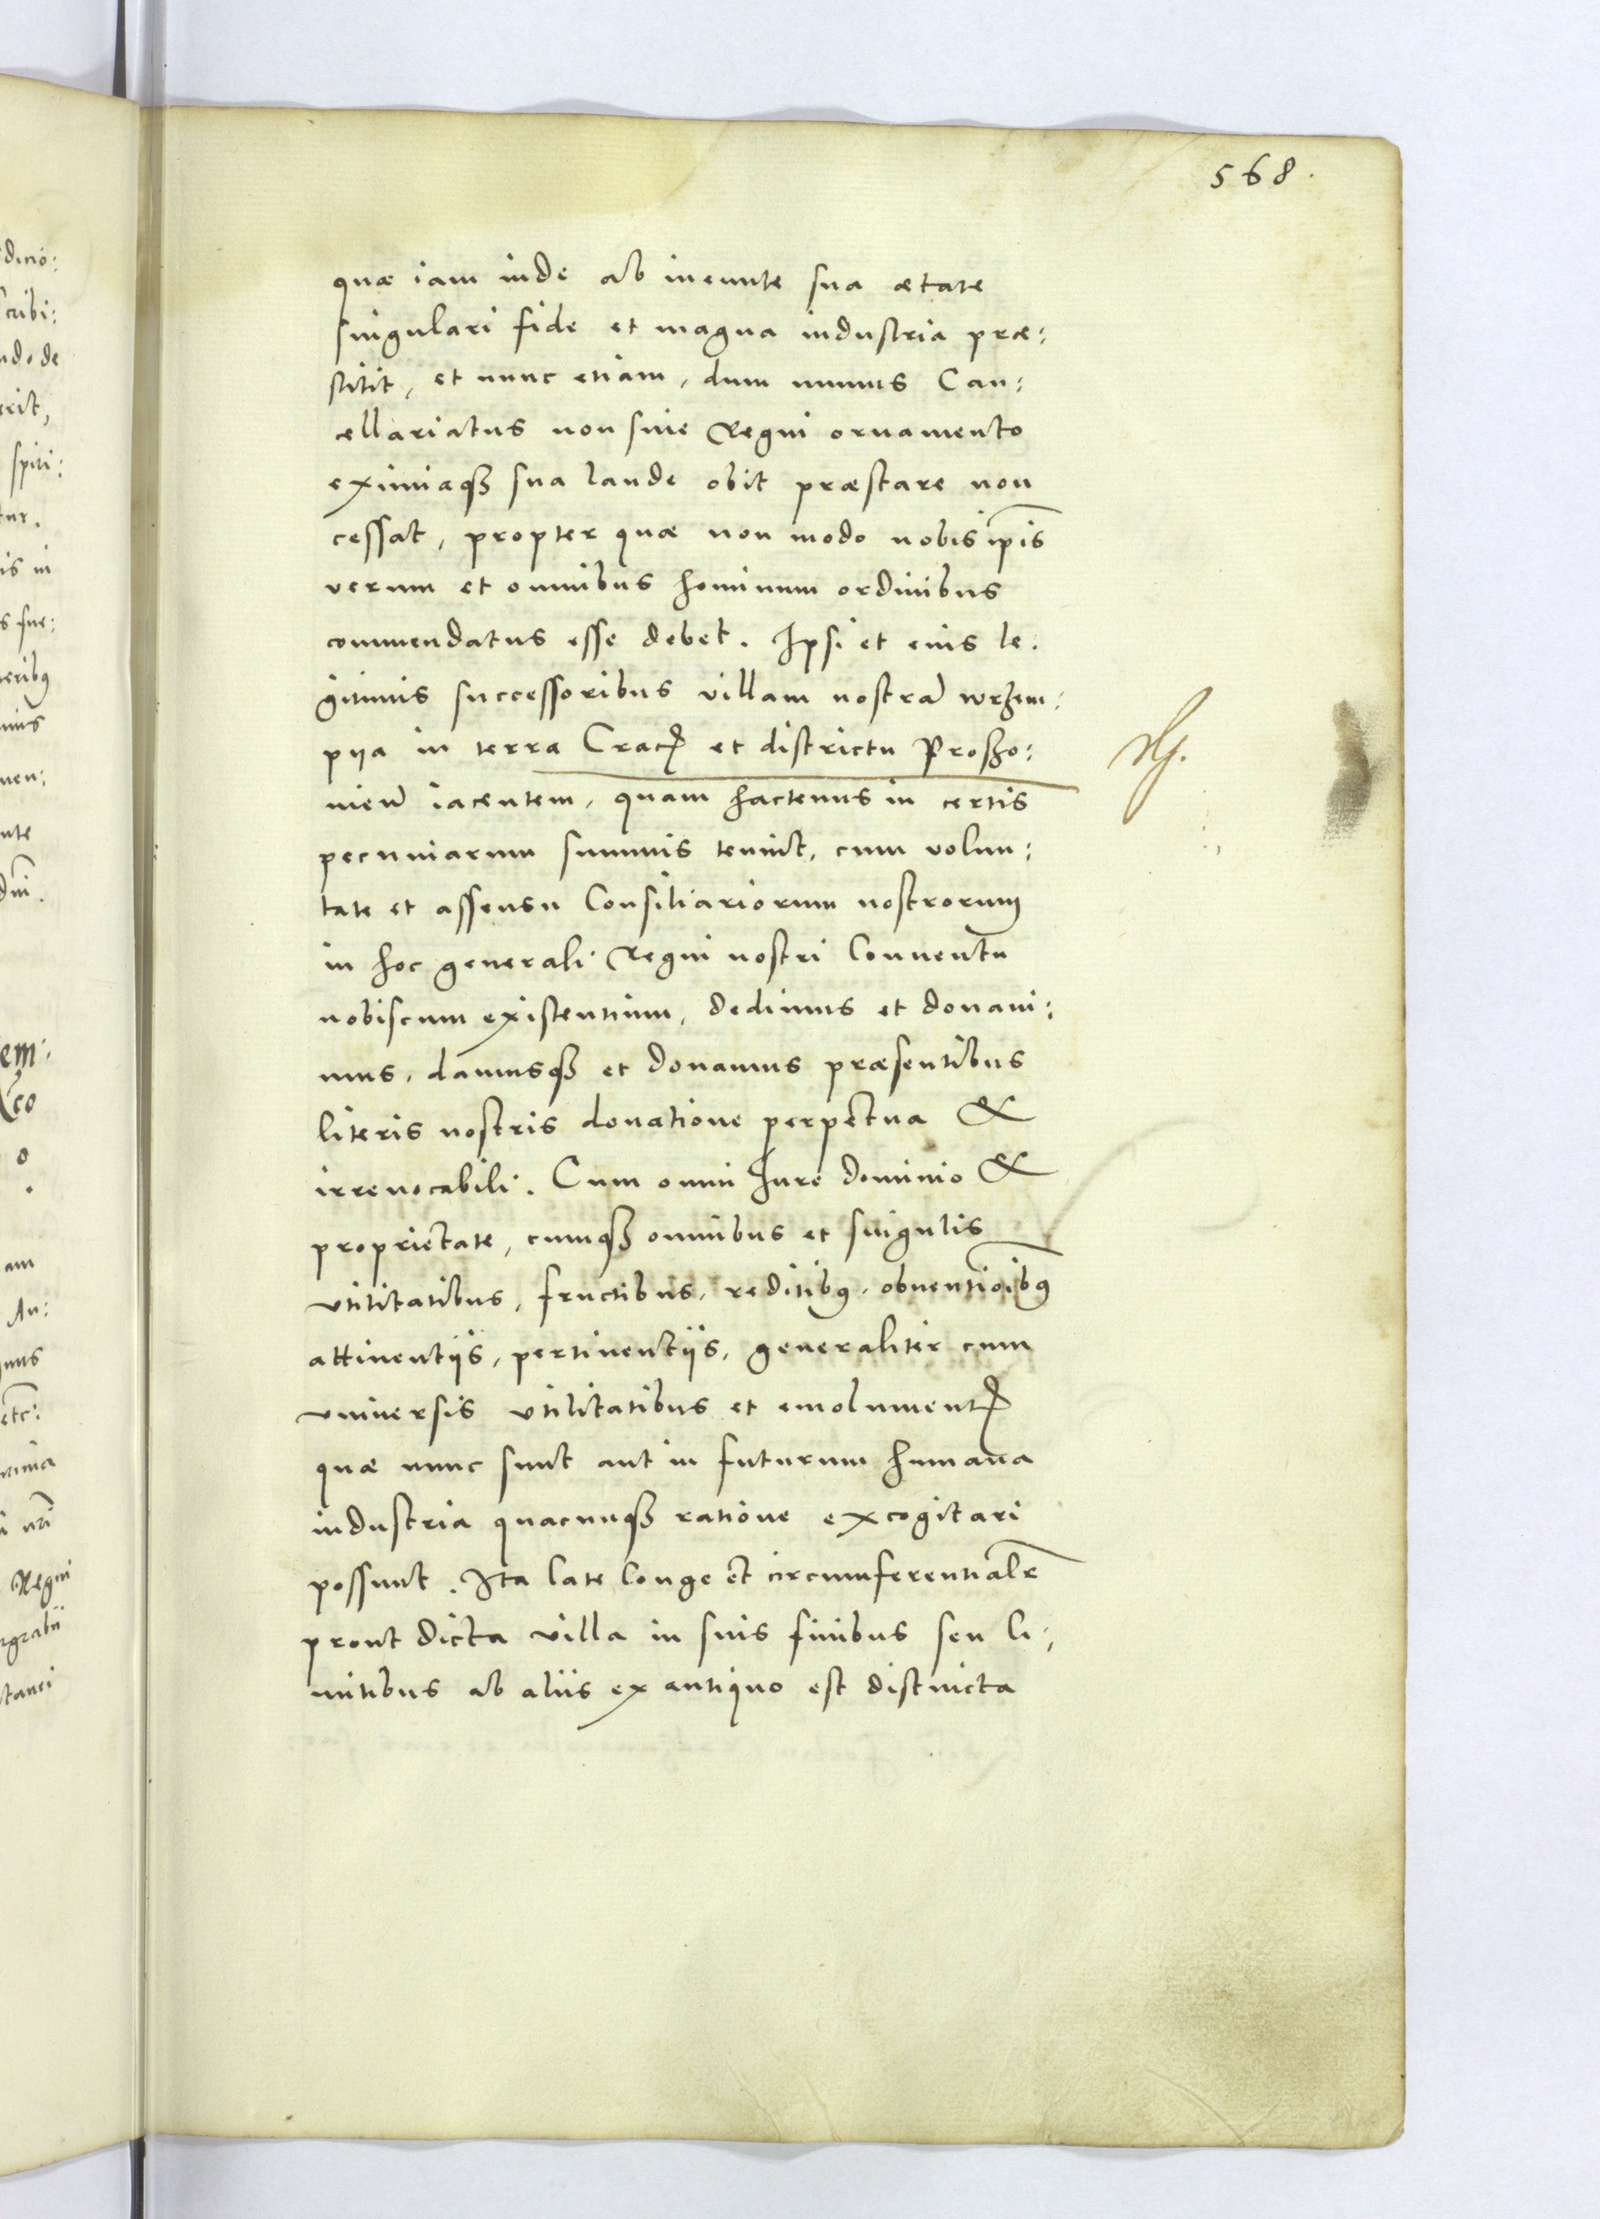 568.
quæ iam inde ab ineunte sua ætate
singulari fide et magna industria præ:
stitit, et nunc etiam, dum munus Can:
cellariatus non sine Regni ornamento
eximiaqȝ sua laude obit præstare non
cessat, propter quæ non modo nobis ip̄is
verum et omnibus hominum ordinibus
commendatus esse debet. Ipsi et eius le.
gitimis successoribus villam nostrā wrzem:
pija in terra Crac̄ et districtu Proszo:
vien̄ iacentem, quam hactenus in certis
pecuniarum summis tenuit, cum volun:
tate et assensu Consiliariorum nostrorum
in hoc generali Regni nostri Conventu
nobiscum existentium, dedimus et donavi:
mus, damusqȝ et donamus præsentibus
literis nostris donatione perpetua &
irrevocabili. Cum omni Iure dominio &
proprietate, cumqȝ omnibus et singulis
vtilitatibus, fructibus, reditibꝰ, obventio͞ibꝰ
attinentijs, pertinentijs, generaliter cum
vniversis vtilitatibus et emolumentꝭ
quæ nunc sunt aut in futurum humana
industria quacunqȝ ratione excogitari
possunt. Ita late longe et circumferentialr̄
prout dicta villa in suis finibus seu li:
mitibus ab aliis ex antiquo est distincta